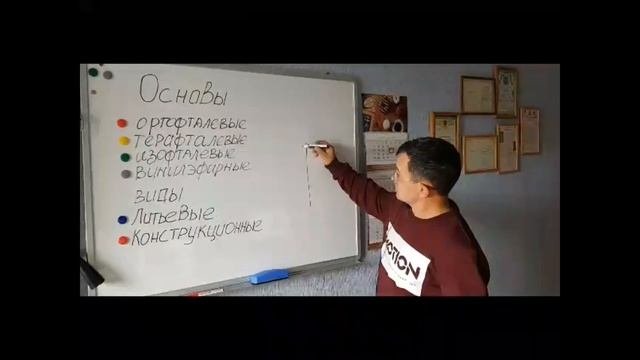 Основы
ортофталевые
терафталевые
изофталевые
винилэфирные
виды
Литьевые
Конструкционные
MOTION